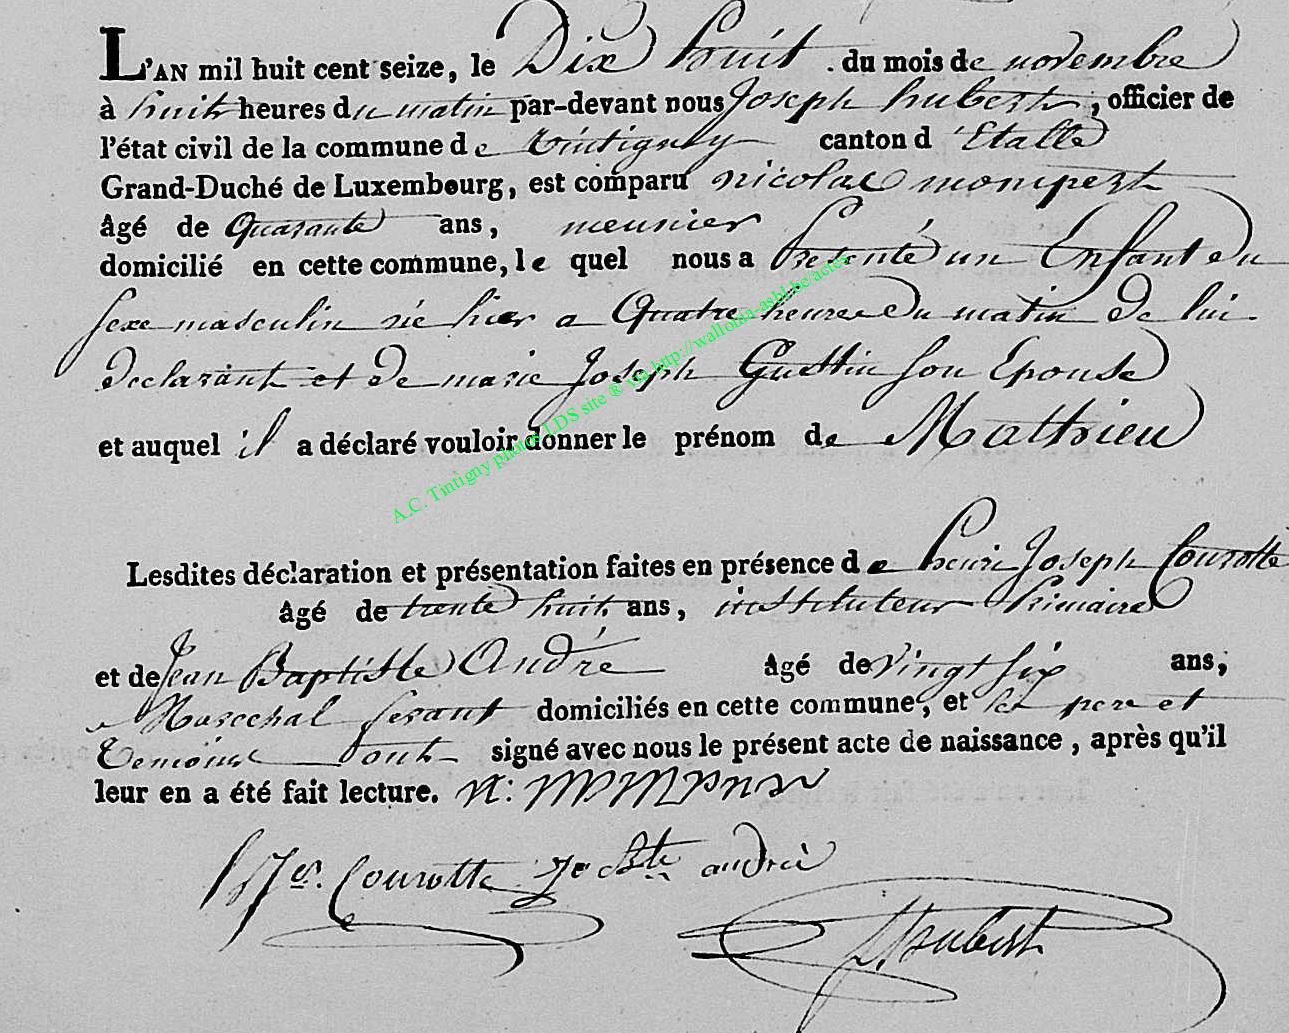 L'AN mil huit cent seize, le Dix huit . du mois de novembre
à huit heures du matin par-devant nous Joseph hubert, officier de
l'état civil de la commune de tintigny canton d'Etalle
Grand-Duché de Luxembourg, est comparu nicolas mompert
âgé de Quarante ans, meunier
domicilié en cette commune, le quel nous a Presenté un Enfant du
sexe masculin né hier a Quatre heures Du matin De lui
declarant et De marie Joseph Guettin son Epouse
et auquel il a déclaré vouloir donner le prénom de Mathieu
A.C. Tintigny photos LDS site ® via http://wallonia-asbl.be/actes
Lesdites déclaration et présentation faites en présence de henri Joseph Courotte
âgé de trente huit ans, instituteur Primaire
et de Jean Baptiste André âgé de vingt six ans,
Marechal ferant domiciliés en cette commune, et les pere et
temoins ont signé avec nous le présent acte de naissance, après qu'il
leur en a été fait lecture. N: mompert
Courotte Je Bte andré
Hubert